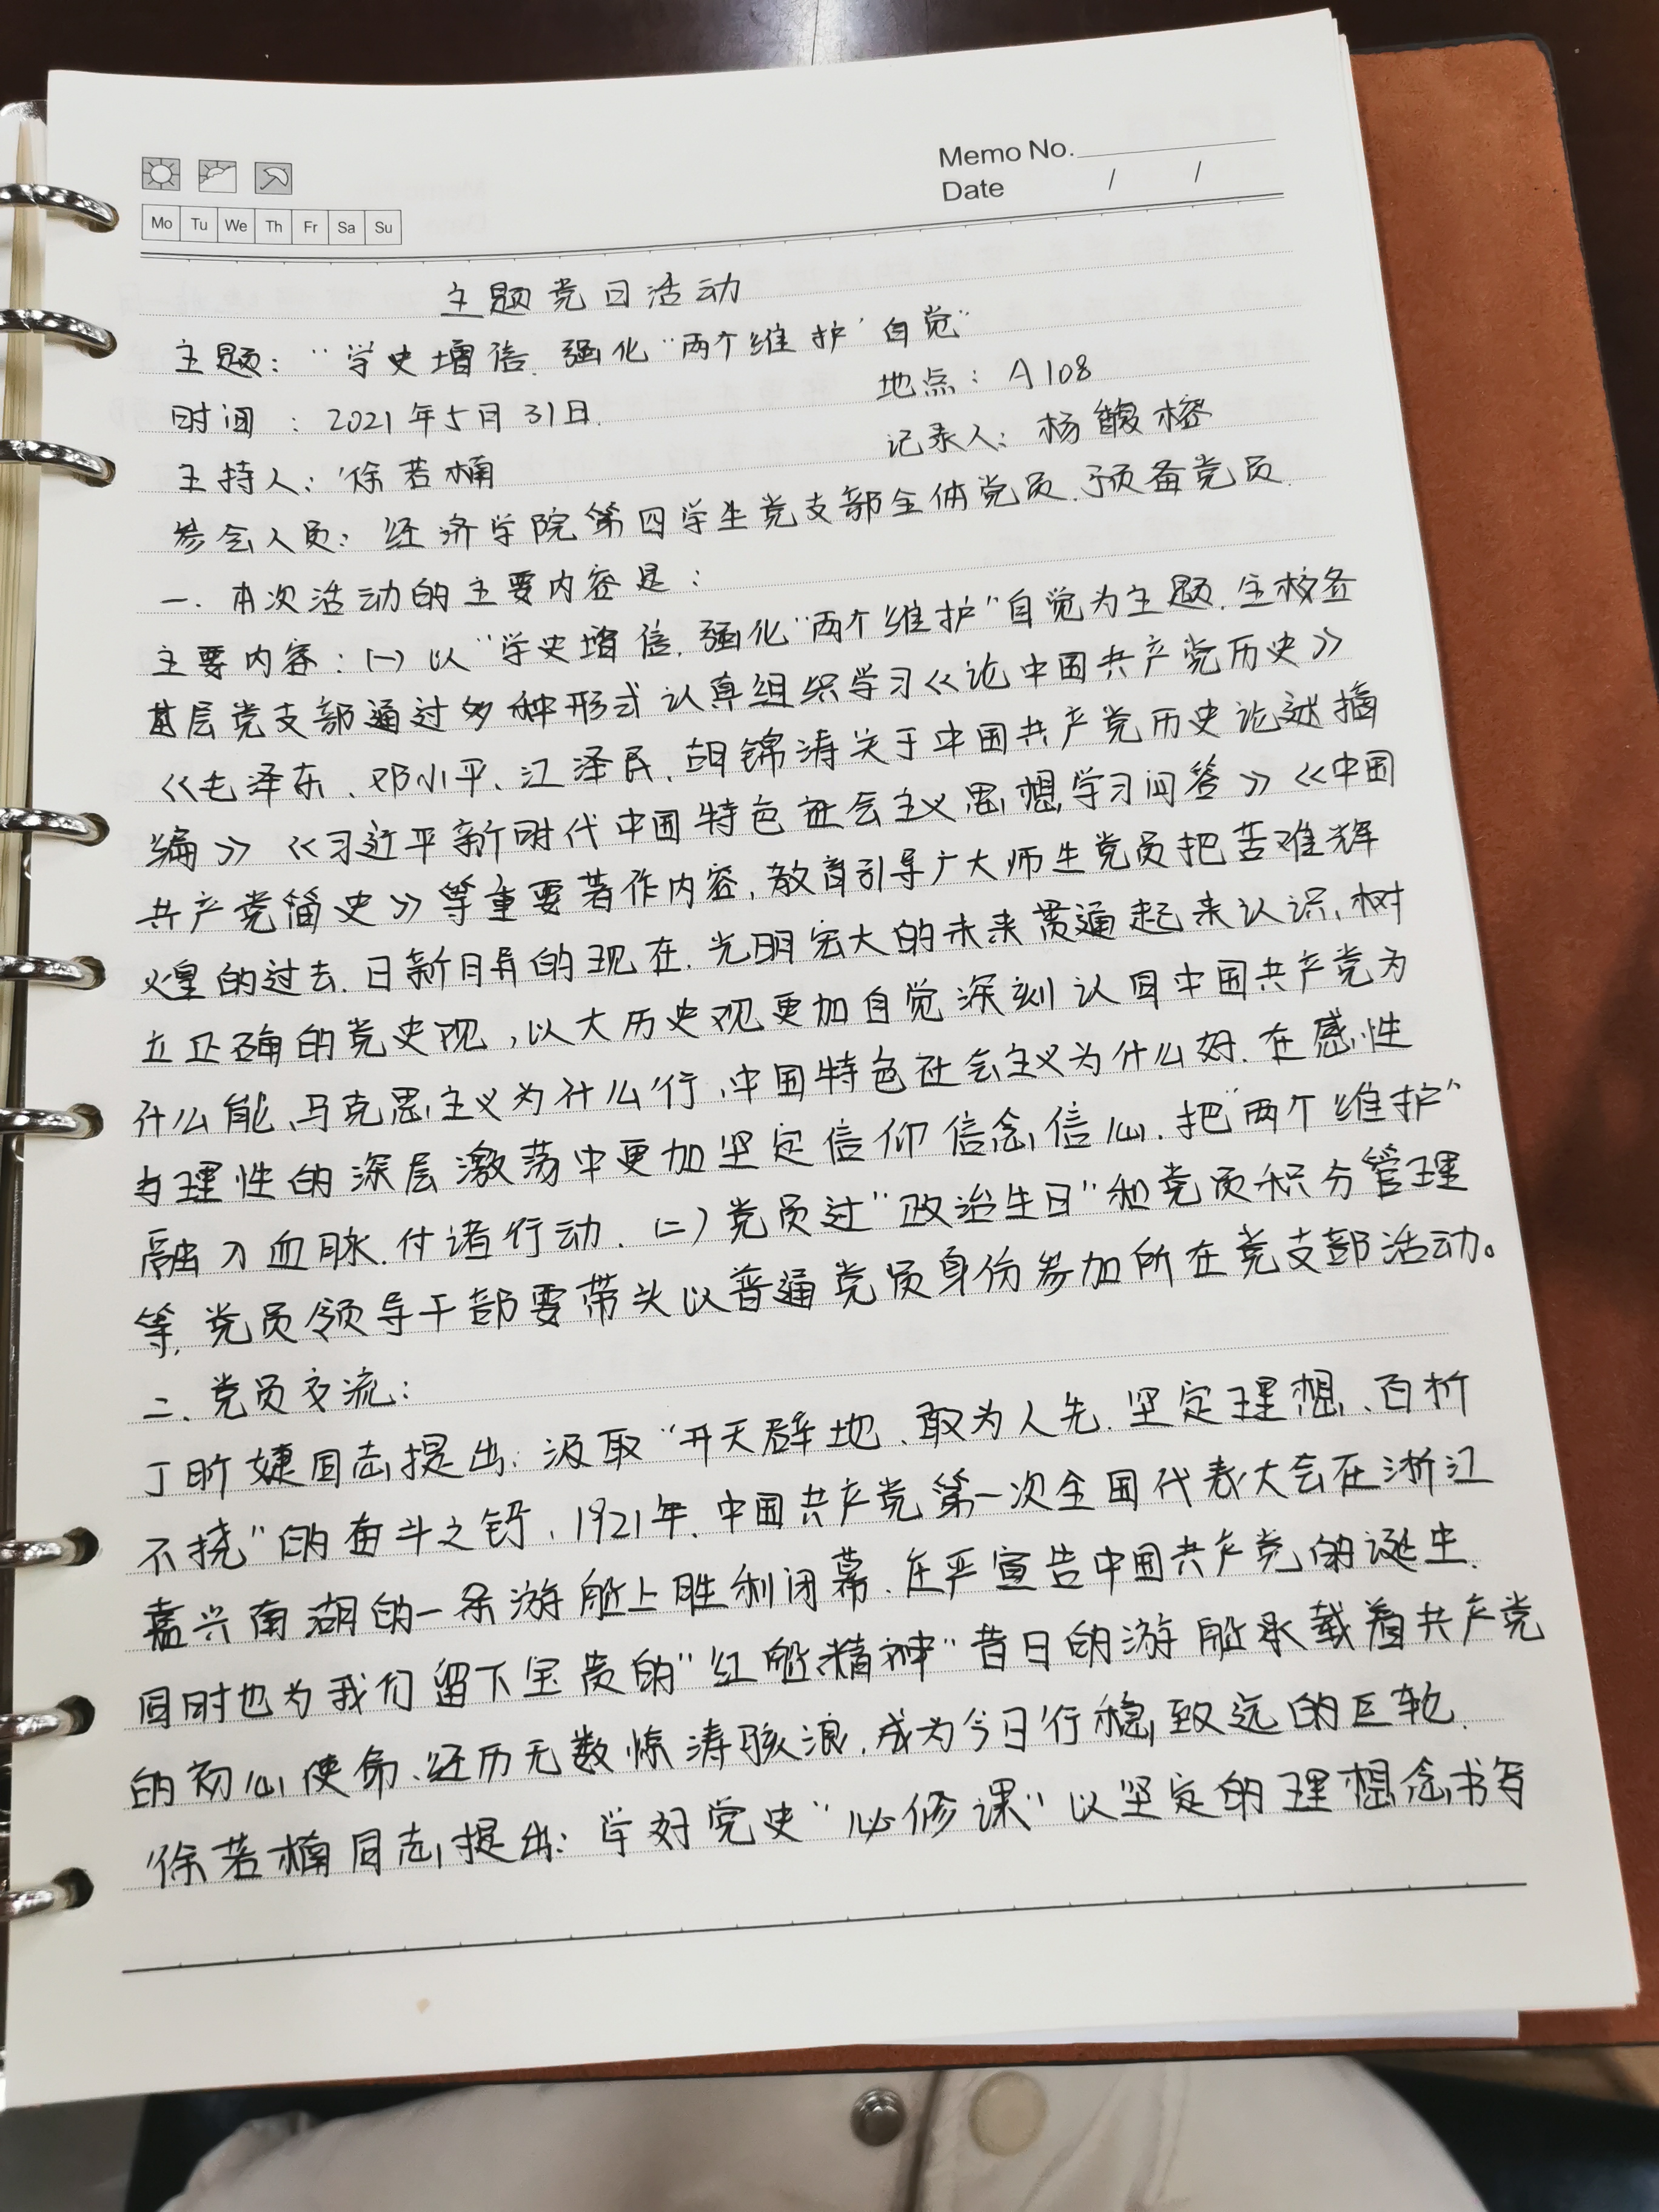 Memo No.
Date / /
Mo Tu We Th Fr Sa Su
主题党日活动
主题："学史增信、强化"两个维护"自觉"
时间：2021年5月31日. 地点：A108
主持人：徐若楠 记录人：杨馥榕
参会人员：经济学院第四学生党支部全体党员、预备党员.
一. 本次活动的主要内容是：
主要内容：(一) 以"学史增信、强化"两个维护"自觉为主题，全校各
基层党支部通过多种形式认真组织学习《论中国共产党历史》
《毛泽东、邓小平、江泽民、胡锦涛关于中国共产党历史论述摘
编》《习近平新时代中国特色社会主义思想学习问答》《中国
共产党简史》等重要著作内容，教育引导广大师生党员把苦难辉
煌的过去、日新月异的现在、光明宏大的未来贯通起来认识，树
立正确的党史观，以大历史观更加自觉深刻认中国共产党为
什么能、马克思主义为什么行、中国特色社会主义为什么好，在感性
与理性的深层激荡中更加坚定信仰信念信心，把"两个维护"
融入血脉、付诸行动. (二) 党员过"政治生日"和党员积分管理
等，党员领导干部要带头以普通党员身份参加所在党支部活动。
二、党员交流：
丁昕婕同志提出：汲取"开天辟地、敢为人先、坚定理想、百折
不挠"的奋斗之钙，1921年，中国共产党第一次全国代表大会在浙江
嘉兴南湖的一条游船上胜利闭幕，庄严宣告中国共产党的诞生.
同时也为我们留下宝贵的"红船精神"昔日的游船承载着共产党
的初心使命、经历无数惊涛骇浪，成为今日行稳致远的巨轮.
徐若楠同志提出：学好党史"必修课"以坚定的理想念书写